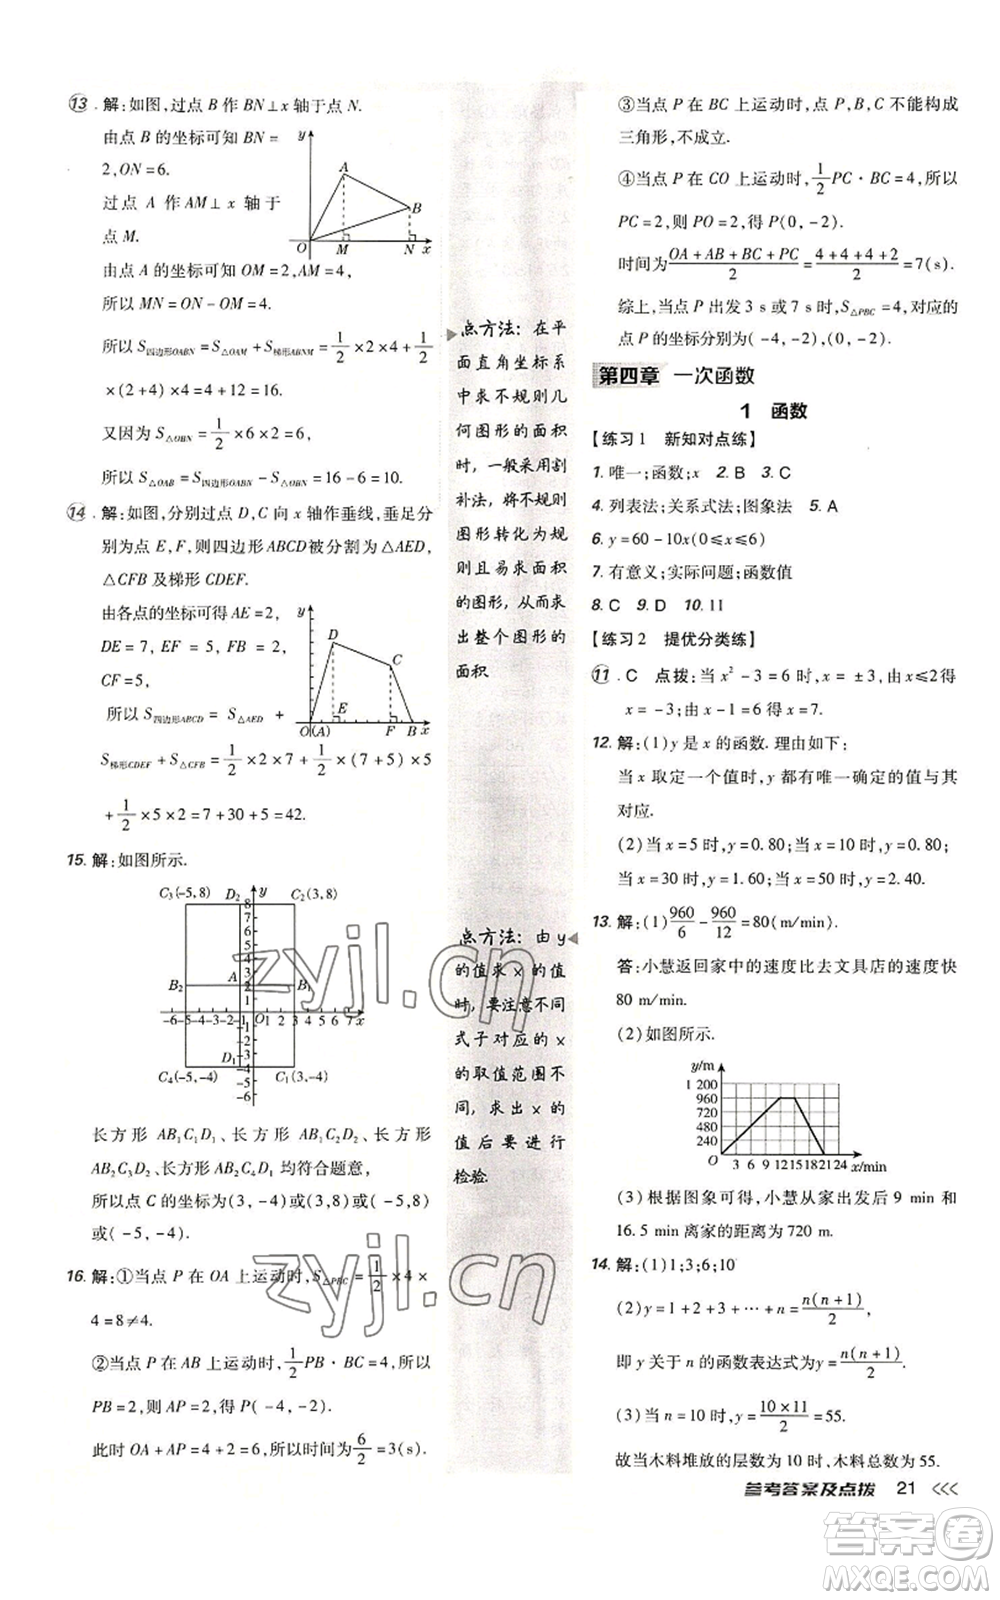 13. 解:如图,过点 B 作 BN⊥x 轴于点 N.
由点 B 的坐标可知 BN =
2,ON=6.
过点 A 作 AM⊥x 轴于
点 M.
y
A
B
O M N x
由点 A 的坐标可知 OM=2,AM=4,
所以 MN=ON-OM=4.
所以 S四边形OABN = S△OAM + S梯形ABNM = 1/2 ×2×4+ 1/2
×(2+4)×4=4+12=16.
又因为 S△OBN = 1/2 ×6×2=6,
所以 S△OAB = S四边形OABN - S△OBN =16-6=10.
14. 解:如图,分别过点 D,C 向 x 轴作垂线,垂足分
别为点 E,F,则四边形 ABCD 被分割为△AED,
△CFB 及梯形 CDEF.
由各点的坐标可得 AE=2,
DE=7, EF=5, FB=2,
CF=5,
所以 S四边形ABCD = S△AED +
y
D
C
E
O(A) F B x
S梯形CDEF + S△CFB = 1/2 ×2×7+ 1/2 ×(7+5)×5
+ 1/2 ×5×2=7+30+5=42.
15. 解:如图所示.
C3(-5,8) D2 y C2(3,8)
8
A
B2 2 B1
-6 -5 -4 -3 -2 -1 O 1 2 3 4 5 6 7 x
D1
C4(-5,-4) C1(3,-4)
-5
-6
长方形 AB1C1D1、长方形 AB1C2D2、长方形
AB2C3D2、长方形 AB2C4D1 均符合题意,
所以点 C 的坐标为(3,-4)或(3,8)或(-5,8)
或(-5,-4).
16. 解:①当点 P 在 OA 上运动时,S△PBC = 1/2 ×4×
4=8≠4.
②当点 P 在 AB 上运动时, 1/2 PB·BC=4,所以
PB=2,则 AP=2,得 P(-4,-2).
此时 OA+AP=4+2=6,所以时间为 6/2 =3(s).
点方法: 在平
面直角坐标系
中求不规则几
何图形的面积
时,一般采用割
补法,将不规则
图形转化为规
则且易求面积
的图形,从而求
出整个图形的
面积
点方法: 由 y
的值求 x 的值
时,要注意不同
式子对应的 x
的取值范围不
同,求出 x 的
值后要进行
检验.
③当点 P 在 BC 上运动时,点 P,B,C 不能构成
三角形,不成立.
④当点 P 在 CO 上运动时, 1/2 PC·BC=4,所以
PC=2,则 PO=2,得 P(0,-2).
时间为 (OA+AB+BC+PC)/2 = (4+4+4+2)/2 =7(s).
综上,当点 P 出发 3 s 或 7 s 时,S△PBC =4,对应的
点 P 的坐标分别为(-4,-2)或(0,-2).
第四章 一次函数
1 函数
【练习1 新知对点练】
1. 唯一;函数;x 2. B 3. C
4. 列表法;关系式法;图象法 5. A
6. y=60-10x(0≤x≤6)
7. 有意义;实际问题;函数值
8. C 9. D 10. 11
【练习2 提优分类练】
11. C 点拨:当 x²-3=6 时,x=±3,由 x≤2得
x=-3;由 x+1=6 时,x=7.
12. 解:(1)y 是 x 的函数. 理由如下:
当 x 取定一个值时,y 都有唯一确定的值与其
对应.
(2)当 x=5 时,y=0.80;当 x=10 时,y=0.80;
当 x=30 时,y=1.60;当 x=50 时,y=2.40.
13. 解:(1) 960/6 - 960/12 =80(m/min).
答:小慧返回家中的速度比去文具店的速度快
80 m/min.
(2)如图所示.
y/m
1 200
960
720
480
240
O 3 6 9 12 15 18 21 24 x/min
(3)根据图象可得,小慧从家出发后 9 min 和
16.5 min 离家的距离为 720 m.
14. 解:(1)1;3;6;10
(2)y=1+2+3+…+n= n(n+1)/2,
即 y 关于 n 的函数表达式为y= n(n+1)/2.
(3)当 n=10 时,y= 10×11/2 =55.
故当木料堆放的层数为 10 时,木料总数为 55.
参考答案及点拨 21
zyjl.cn
zyjl.cn
答案圈
MXQE.COM